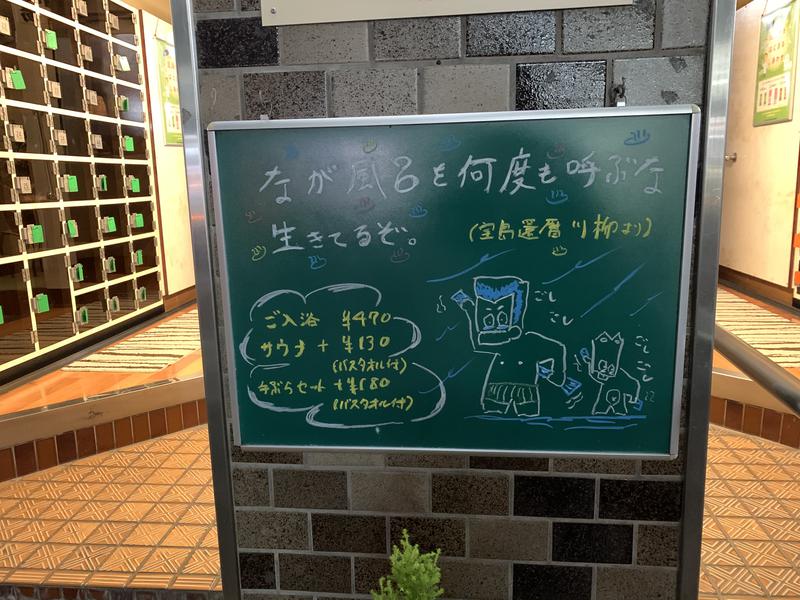 なが風呂を何度も呼ぶな
生きてるぞ。
(宝島還暦川柳より)
ご入浴 ¥470
サウナ + ¥130
(バスタオル付)
手ぶらセット +¥180
(バスタオル付)
ごし
ごし
ごし
ごし